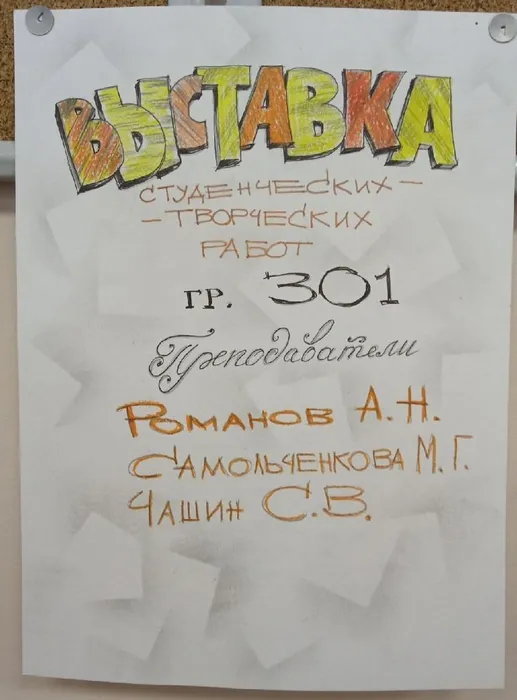 ВЫСТАВКА
СТУДЕНЧЕСКИХ –
– ТВОРЧЕСКИХ
РАБОТ
ГР. 301
Преподаватели
РОМАНОВ А.Н.
САМОЛЬЧЕНКОВА М.Г.
ЧАШИН С.В.